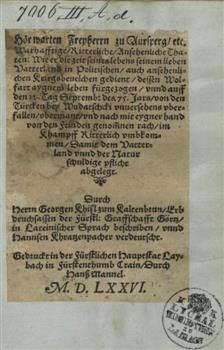 7006. III. A. d.
Hörwarten Freyherrn zu Aursperg / etc.
Warhafftige / Ritterliche / Ansehenliche Tha-
ten. Wie er die zeit seines lebens seinem lieben
Vatterland in Politischen / auch ansehenli-
chen Kriegsbeuelchen gedient / dessen Wol-
fart aygnem leben fürgezogen / vnnd auff
den 22. Tag Septembr. des 75. Jars / von den
Türcken bey Wudatschki vnuersehens vber-
fallen / vbermant / vnd nach mit eygner hand
von den Feinden genommen rach / im
Khampff Ritterlich vmbkom-
men / Damit dem Vatter-
land vnnd der Natur
schuldige pflicht
abgelegt.
Durch
Herrn Georgen Khisl zum Kaltenbrun / Erb-
druchsässen der Fürstl: Graffschafft Görtz /
in Lateinischer Sprach beschriben / vnnd
Hannsen Khratzenpacher verdeutscht.
Gedruckt in der Fürstlichen Hauptstat Lay-
bach in Fürstenthumb Crain / Durch
Hanß Mannel.
M. D. LXXVI.